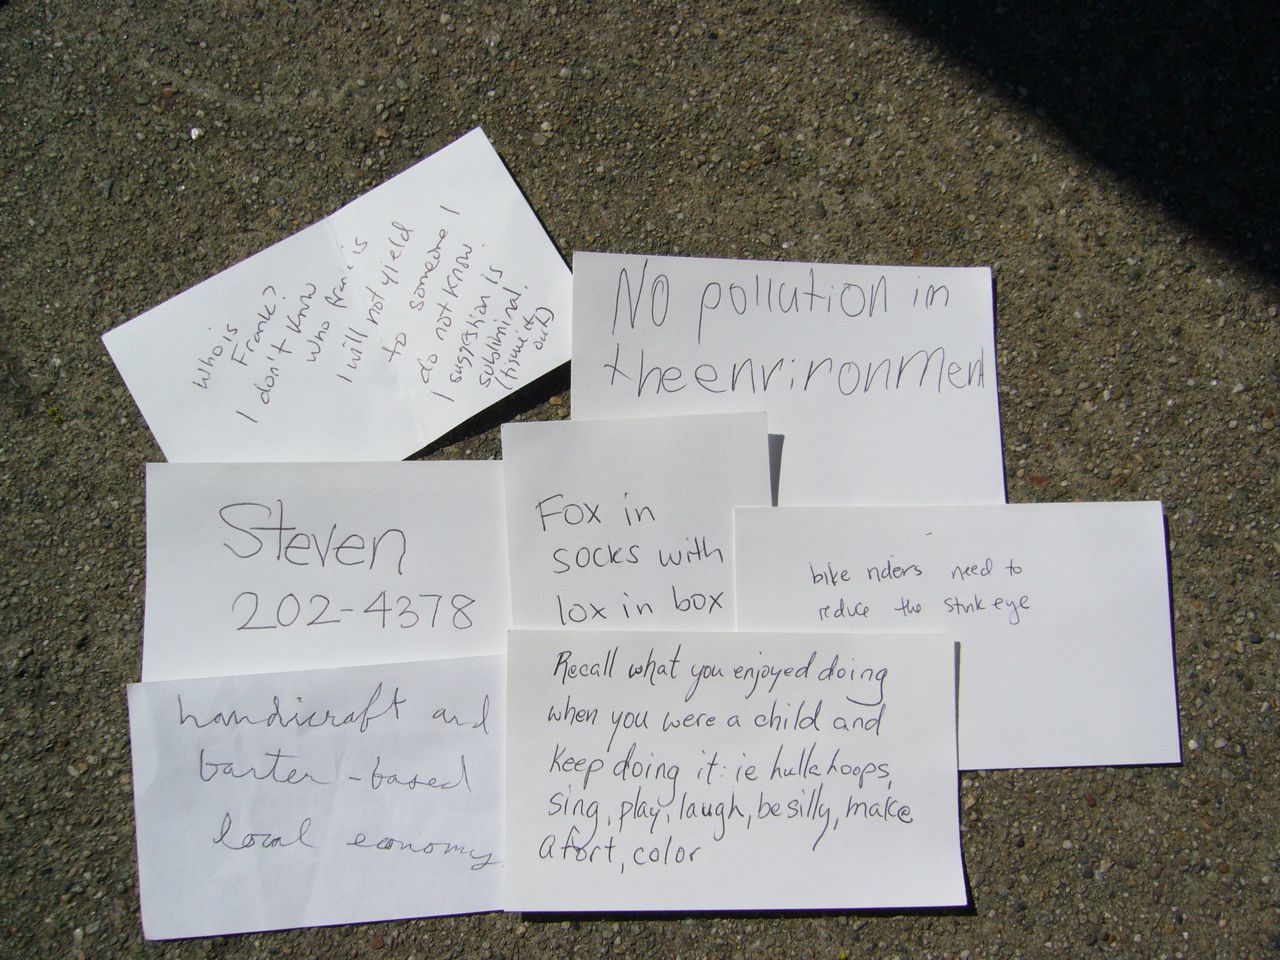 Who is
Frank?
I don't know
who frank is
I will not yield
to someone I
do not know.
I suggestion is
subliminal.
(figure it
out)
No pollution in
theenvironment
Steven
202-4378
Fox in
socks with
lox in box
bike riders need to
reduce the stink eye
handicraft and
barter-based
local economy
Recall what you enjoyed doing
when you were a child and
keep doing it: ie hulla hoops,
sing, play, laugh, be silly, make
a fort, color